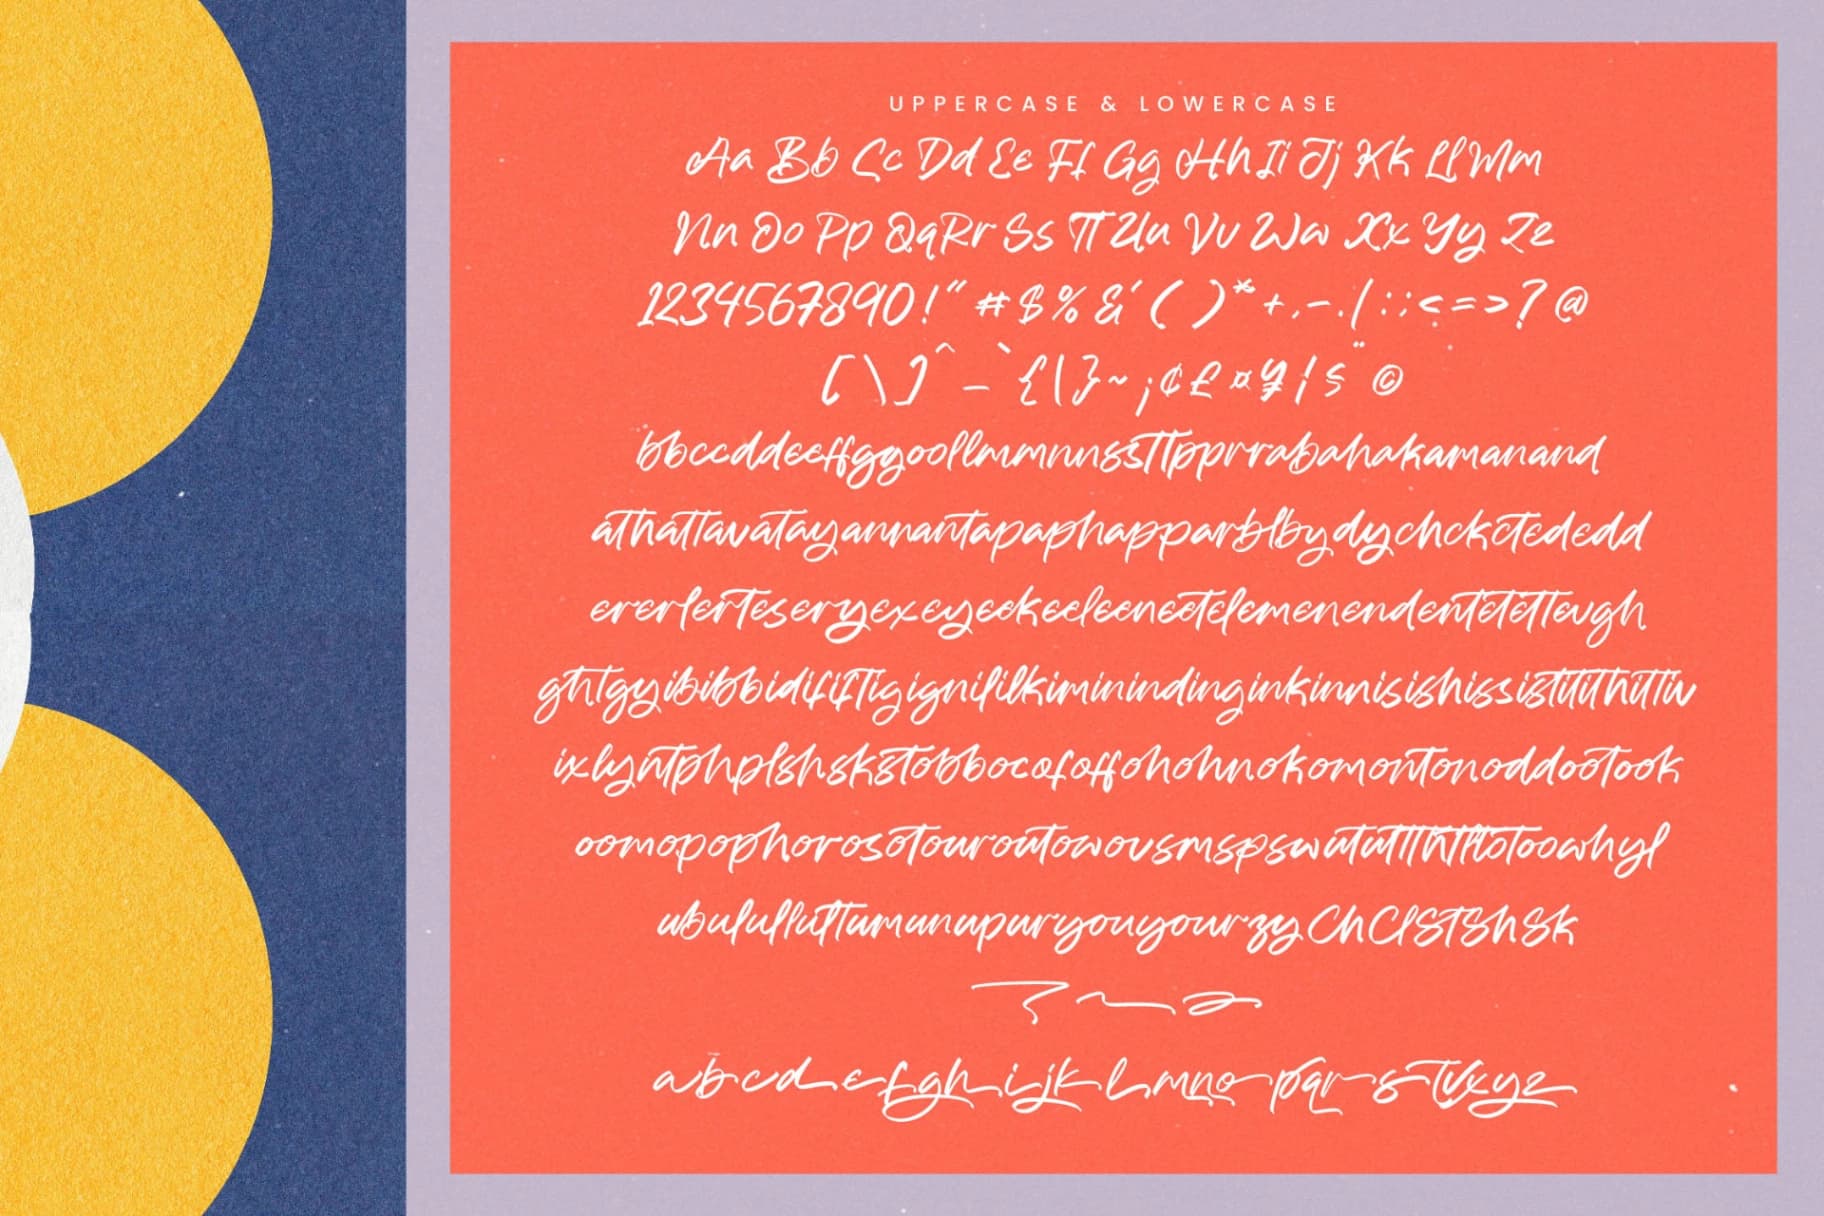 UPPERCASE & LOWERCASE
Aa Bb Cc Dd Ee Ff Gg Hh Ii Jj Kk Ll Mm
Nn Oo Pp Qq Rr Ss Tt Uu Vv Ww Xx Yy Zz
1234567890!" #$%&'( )*+,-./:;<=>?@
[\]^_`{|}~¡¢£¤¥¦§¨©
bbccddeeffggoollmmnnssttpprrabahakamanand
athattavatayannantapaphapparblbydychckctededd
ererlerteseryexeyeekeeleeneetelemenendentetettevgh
ghtgyibibbidififtigignililkiminindinginkinnisishissistitithittiv
ixlyntphplshskstobbocofoffohohnokomontonoddootook
oomopophorosotouroutowovsmspswutattthtltotoowhyl
ubululluttumunupuryouyourzyChClStShSk
abcdefghijklmnopqrstvxyz